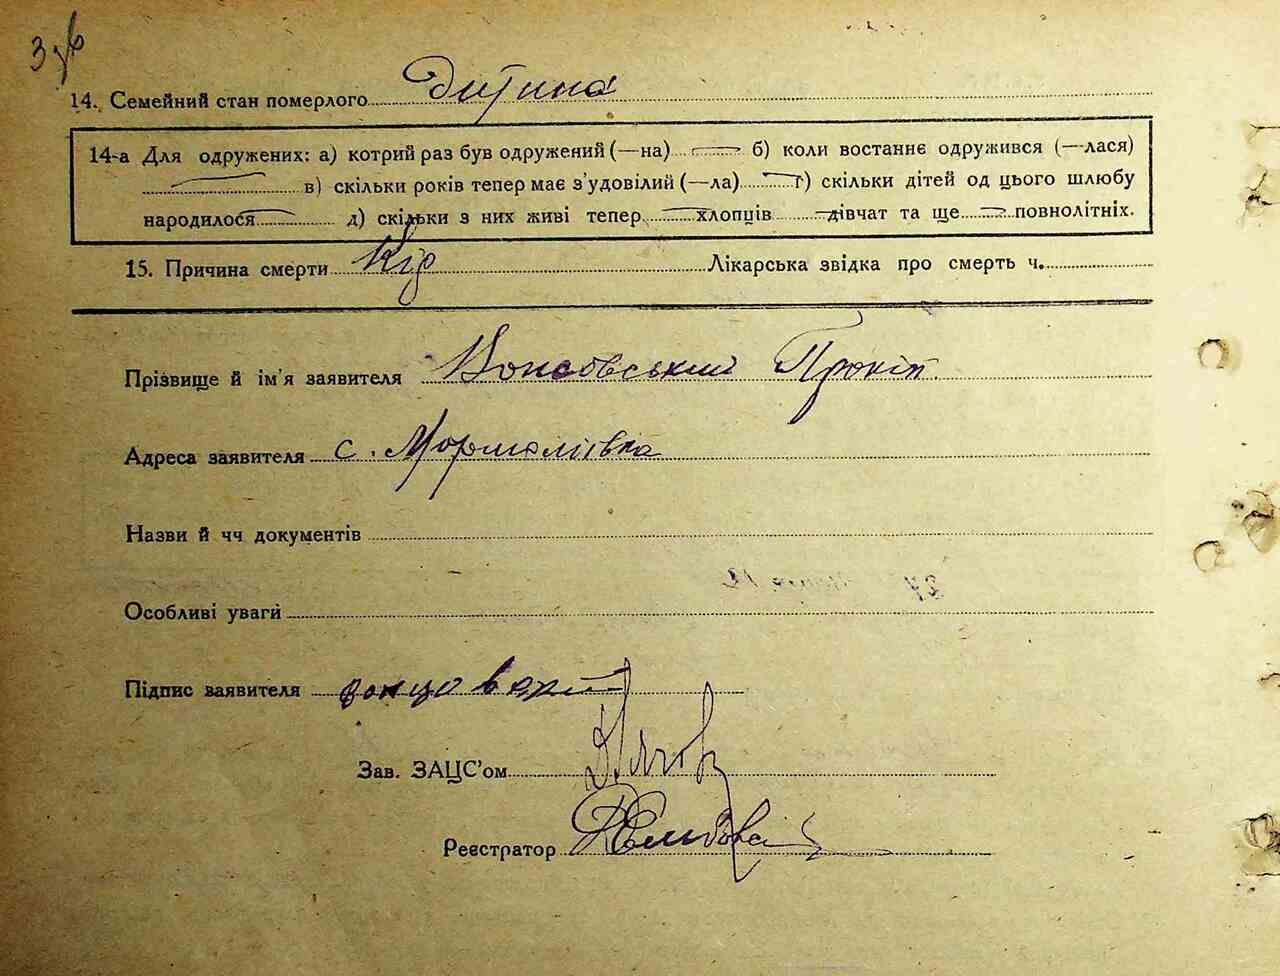 3зв
14. Семейний стан померлого Дитина
14-а Для одружених: а) котрий раз був одружений (—на) — б) коли востаннє одружився (—лася)
— в) скільки років тепер має з'удовілий (—ла) — г) скільки дітей од цього шлюбу
народилося — д) скільки з них живі тепер — хлопців — дівчат та ще — повнолітніх.
15. Причина смерти Кір Лікарська звідка про смерть ч.
Прізвище й ім'я заявителя Вонсовський Прокіп
Адреса заявителя с. Мормоліївка
Назви й чч документів
Особливі уваги
Підпис заявителя
Зав. ЗАЦС'ом
Реєстратор